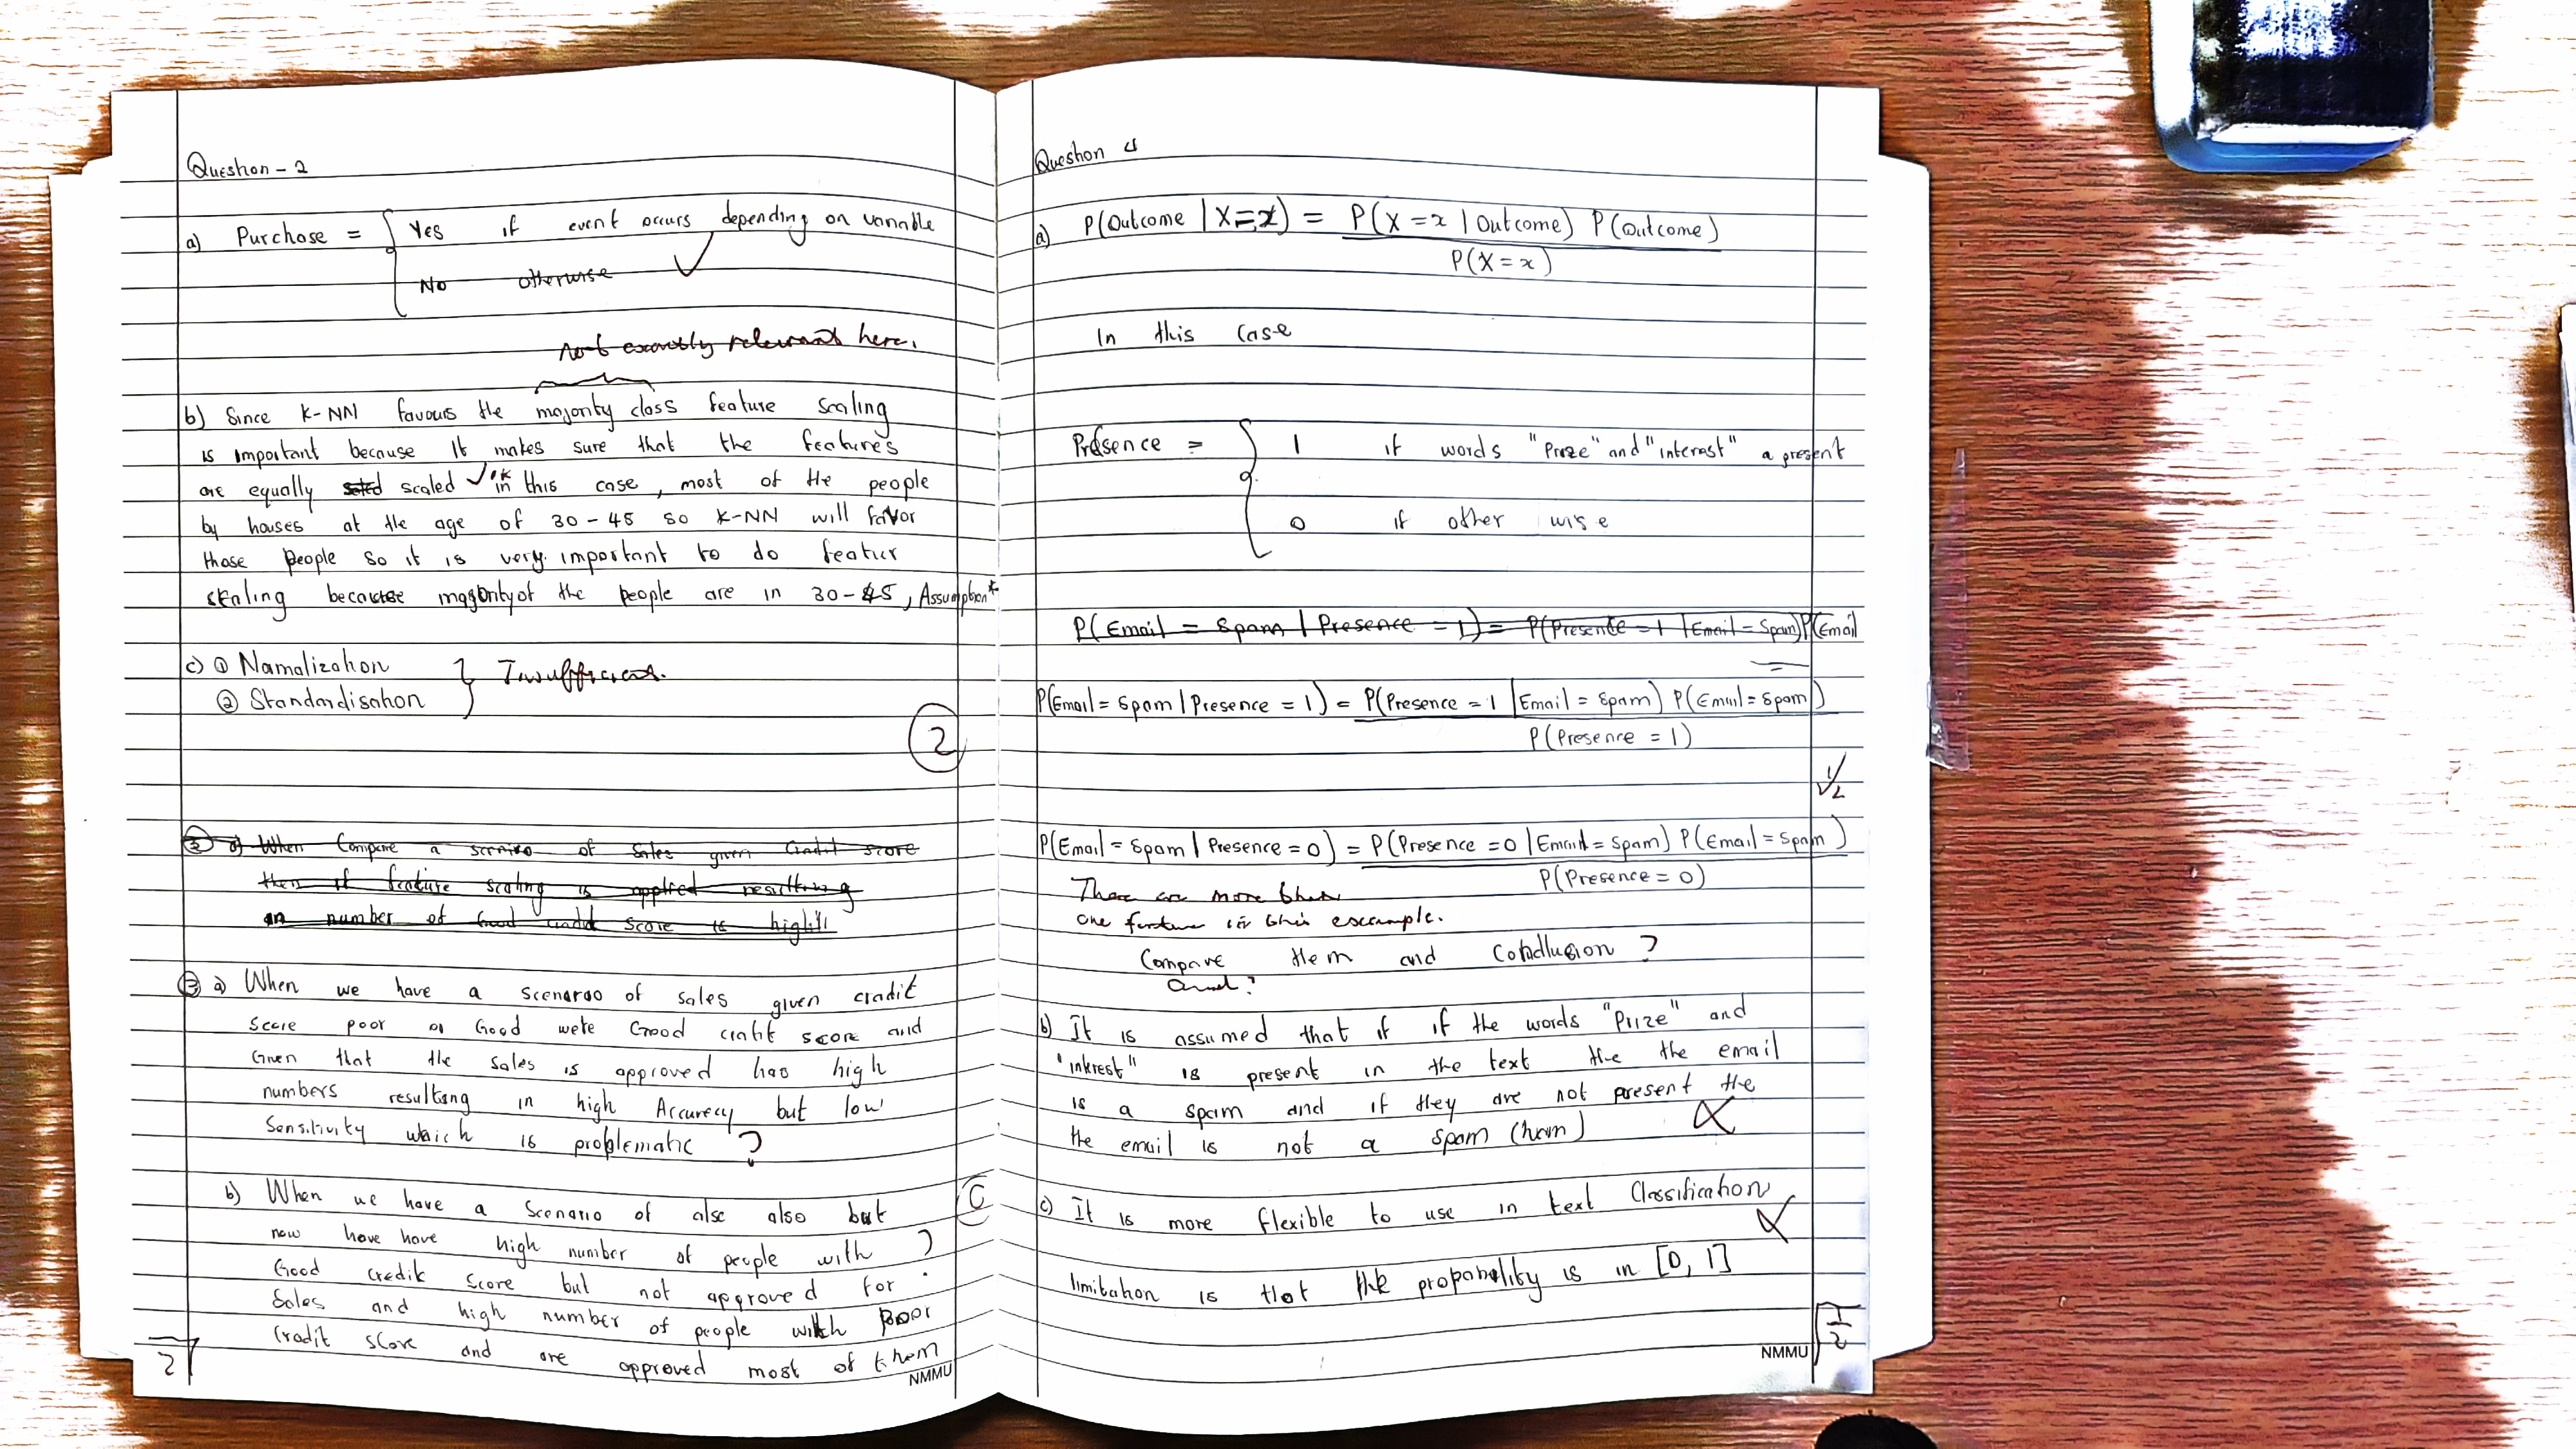 Question - 2
a) Purchase = { Yes if event occurs depending on variable
No otherwise ✓
Not exactly relevant here.
b) Since K-NN favours the majority class feature scaling
is important because It makes sure that the features
are equally scaled ✓ in this case, most of the people
by houses at the age of 30-45 so K-NN will favor
those people so it is very important to do featur
scaling because majority of the people are in 30-45, Assumption*
c) ① Namalization
② Standardisation
2
③ a) When Compare a of Sales given Credit score
then if feature scaling is applied resulting
an number of Good credit score is high
③ a) When we have a scenaroo of sales given cradit
Score poor or Good wete Good score and
Given that the sales is approved has high
numbers resulting in high Accurecy but low
Sensitivity which is problematic ?
b) When we have a Scenario of alse also but
now have have high number of people with ?
Good credit Score but not approved for
Sales and high number of people with poor
Cradit score and are approved most of them
2
NMMU
Question 4
a) P(Outcome | X=x) = P(X=x | Outcome) P(Outcome)
P(X=x)
In this Case
Presence = { 1 if words "Prize" and "interest" a present
0 if other wise
P(Email = Spam | Presence = 1) = P(Presence = 1 | Email = Spam) P(Email
=
P(Email = Spam | Presence = 1) = P(Presence = 1 | Email = Spam) P(Email = Spam)
P(Presence = 1)
P(Email = Spam | Presence = 0) = P(Presence = 0 | Email = Spam) P(Email = Spam)
P(Presence = 0)
There are more than
one feature in this example.
Compare them and ?
And?
b) It is assumed that if if the words "Prize" and
"intrest" is present in the text the the email
is a spam and if they are not present the
the email is not a spam (ham)
c) It is more flexible to use in text Classification
limitation is that the propability is in [0, 1]
1/2
NMMU